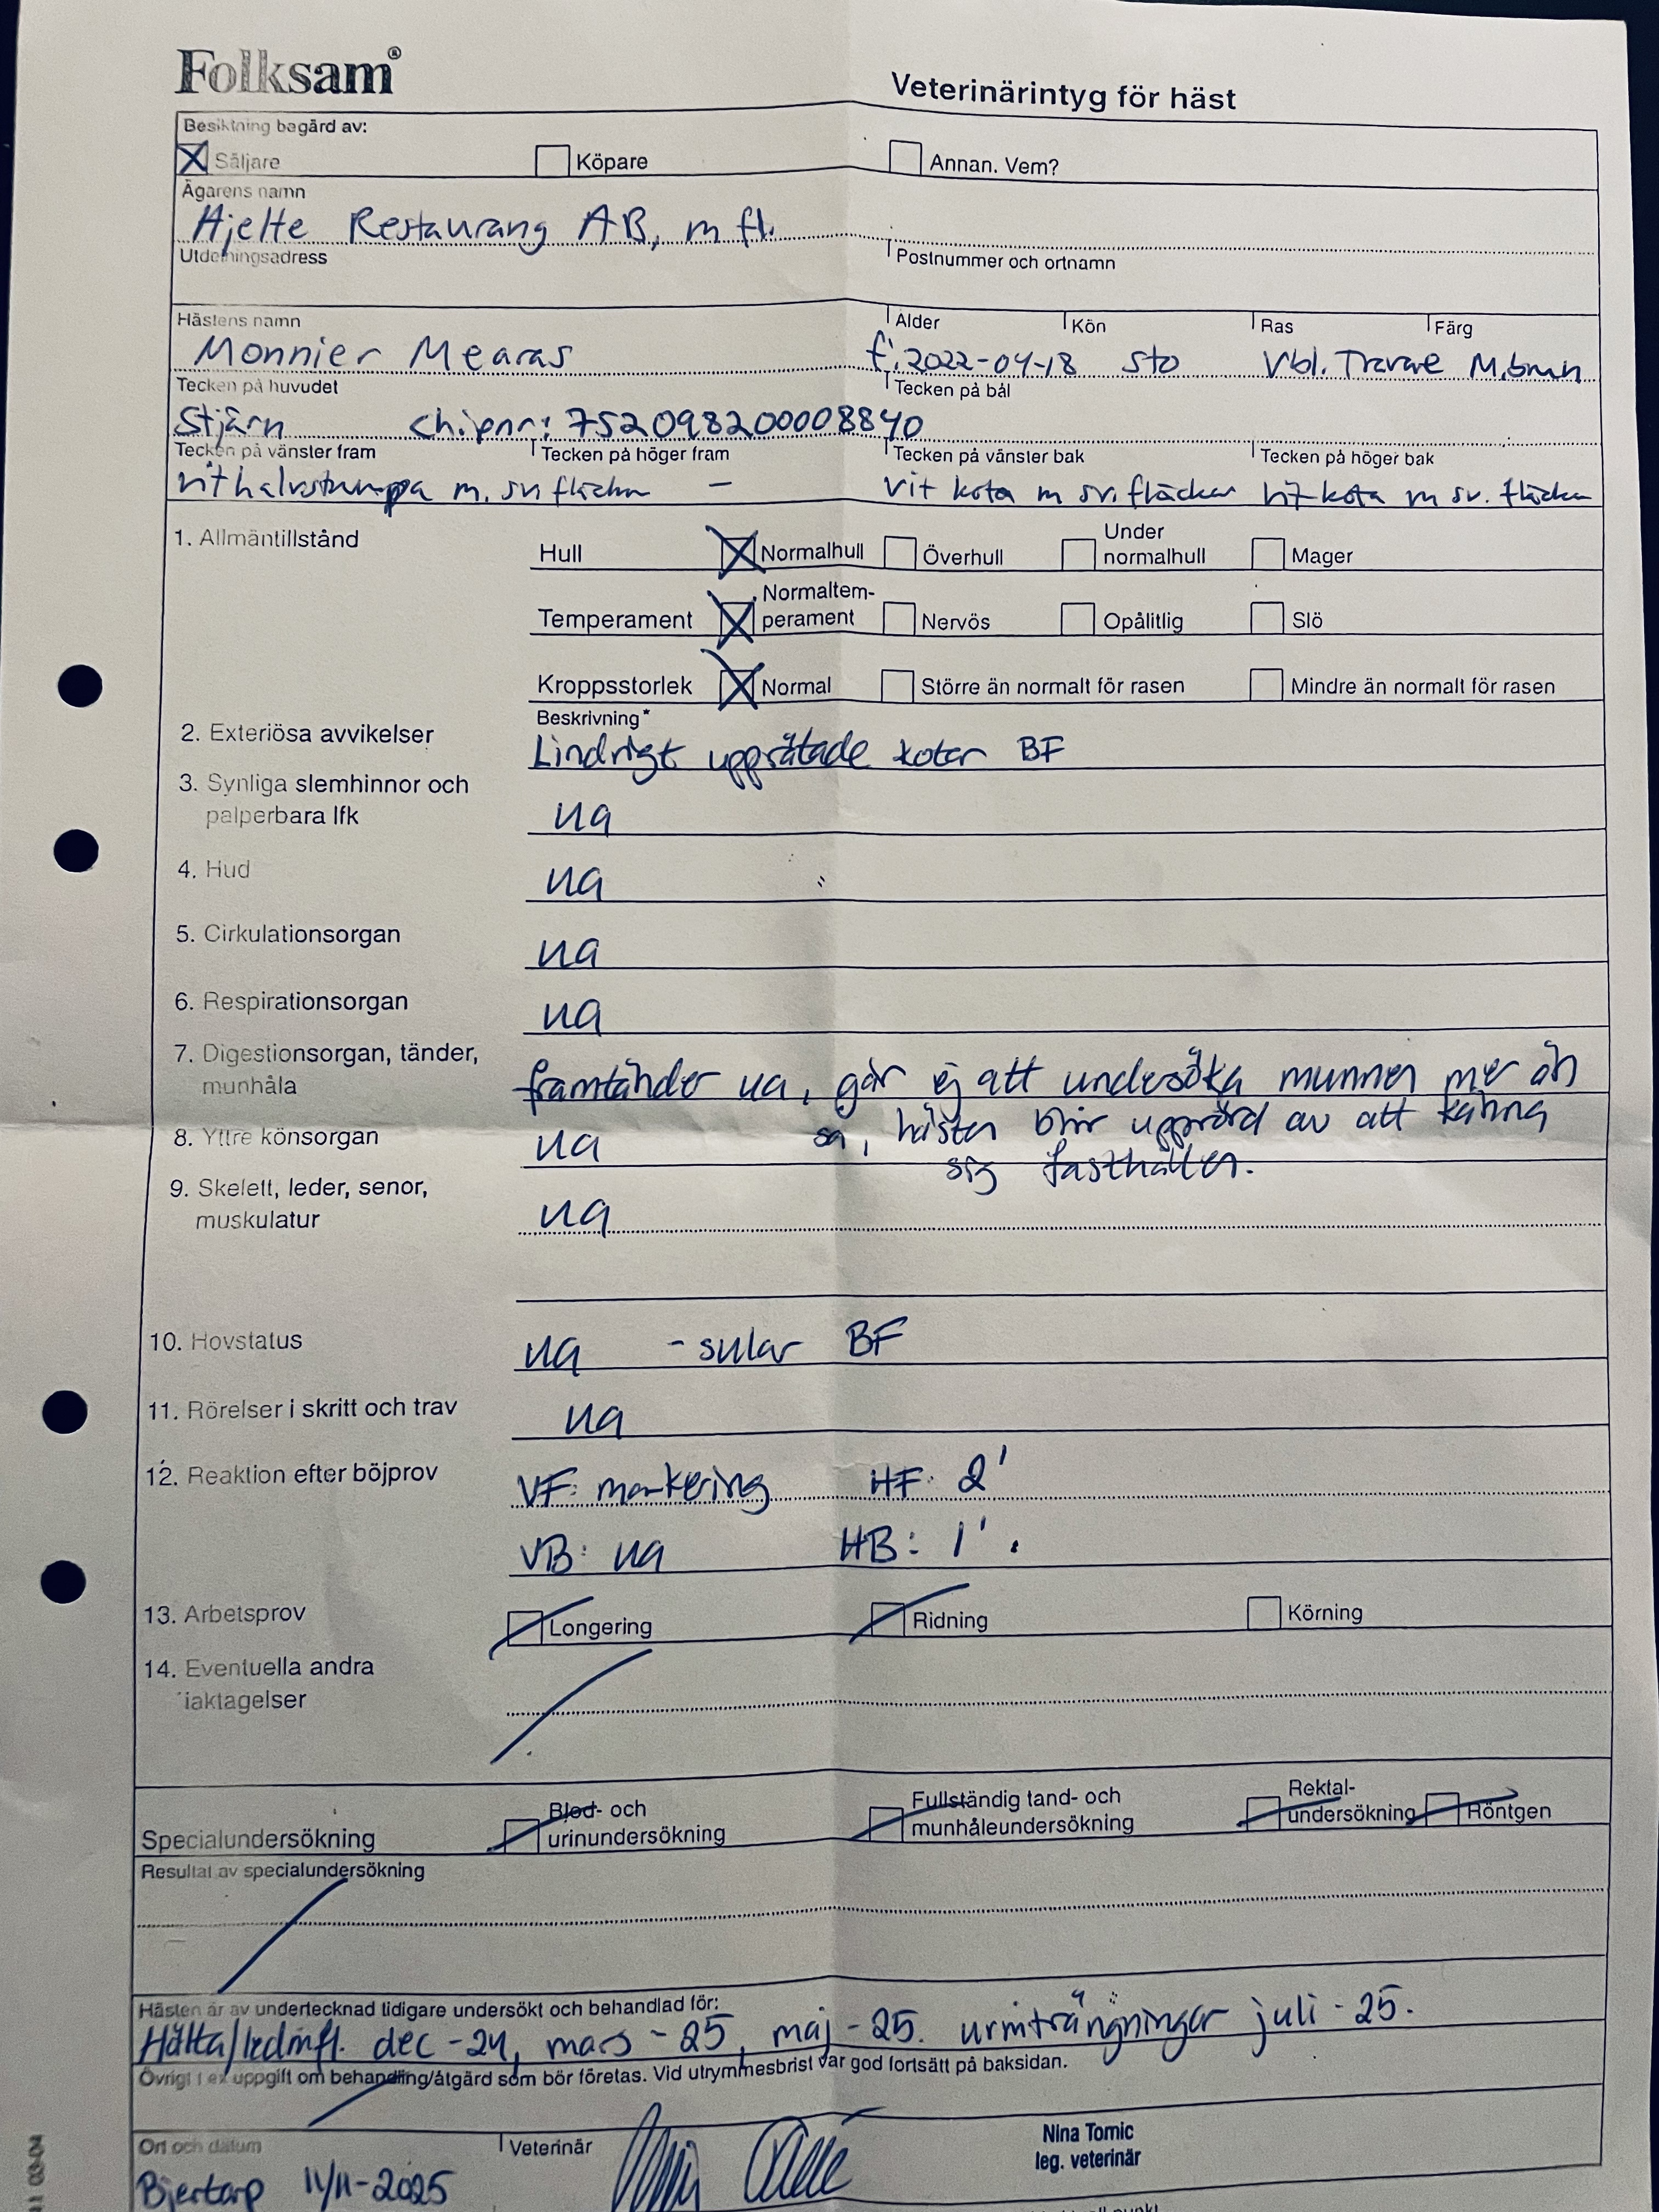 Folksam®
Veterinärintyg för häst
Besiktning begärd av:
Säljare Köpare Annan. Vem?
Ägarens namn
Hjelte Restaurang AB, m fl.
Utdelningsadress Postnummer och ortnamn
Hästens namn Ålder Kön Ras Färg
Monnier Mearas f. 2022-04-18 sto Vbl. Travare M.brun
Tecken på huvudet Tecken på bål
Stjärn chipnr: 752098200008840
Tecken på vänster fram Tecken på höger fram Tecken på vänster bak Tecken på höger bak
vit halvstrumpa m. sv. fläckar - vit kota m sv. fläckar vit kota m sv. fläckar
1. Allmäntillstånd
Hull Normalhull Överhull Under normalhull Mager
Temperament Normaltem-perament Nervös Opålitlig Slö
Kroppsstorlek Normal Större än normalt för rasen Mindre än normalt för rasen
Beskrivning*
2. Exteriösa avvikelser Lindrigt upprätade kotor BF
3. Synliga slemhinnor och
palperbara lfk ua
4. Hud ua
5. Cirkulationsorgan ua
6. Respirationsorgan ua
7. Digestionsorgan, tänder,
munhåla framtänder ua, går ej att undersöka munnen mer än
så, hästen blir upprörd av att känna
sig fasthållen.
8. Yttre könsorgan ua
9. Skelett, leder, senor,
muskulatur ua
10. Hovstatus ua - sular BF
11. Rörelser i skritt och trav ua
12. Reaktion efter böjprov VF: markering HF: 2'
VB: ua HB: 1'.
13. Arbetsprov Longering Ridning Körning
14. Eventuella andra
iaktagelser
Specialundersökning Blod- och urinundersökning Fullständig tand- och munhåleundersökning Rektal-undersökning Röntgen
Resultat av specialundersökning
Hästen är av undertecknad tidigare undersökt och behandlad för:
Hälta/ledinfl. dec-24, mars-25, maj-25. urinträngningar juli-25.
Övrigt t ex uppgift om behandling/åtgärd som bör företas. Vid utrymmesbrist var god fortsätt på baksidan.
Ort och datum Veterinär
Nina Tomic
leg. veterinär
Bjertorp 11/11-2025